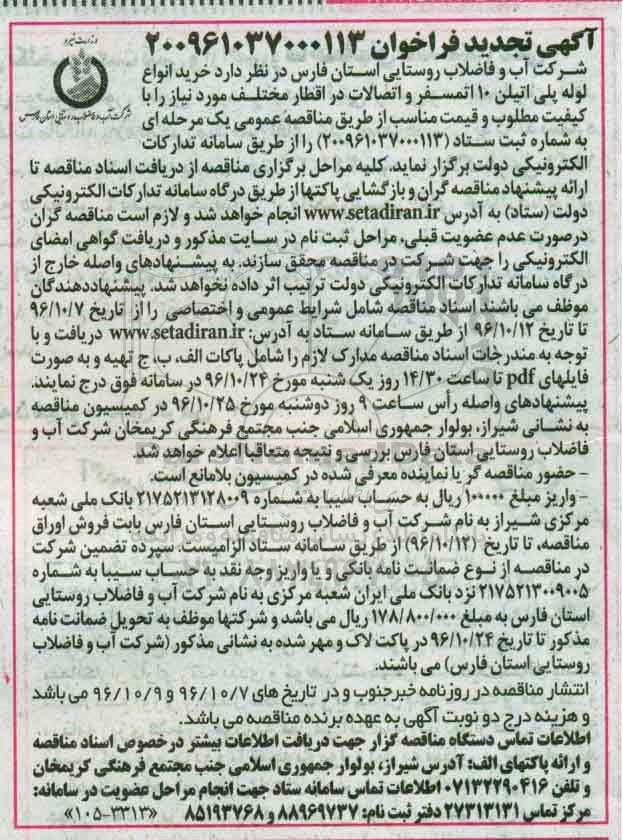 آگهی تجدید فراخوان ۲۰۰۹۶۱۰۳۷۰۰۰۱۱۳
وزارت نیرو
شرکت آب و فاضلاب روستایی استان فارس
شرکت آب و فاضلاب روستایی استان فارس در نظر دارد خرید انواع
لوله پلی اتیلن ۱۰ اتمسفر و اتصالات در اقطار مختلف مورد نیاز را با
کیفیت مطلوب و قیمت مناسب از طریق مناقصه عمومی یک مرحله ای
به شماره ثبت ستاد (۲۰۰۹۶۱۰۳۷۰۰۰۱۱۳) را از طریق سامانه تدارکات
الکترونیکی دولت برگزار نماید. کلیه مراحل برگزاری مناقصه از دریافت اسناد مناقصه تا
ارائه پیشنهاد مناقصه گران و بازگشایی پاکتها از طریق درگاه سامانه تدارکات الکترونیکی
دولت (ستاد) به آدرس www.setadiran.ir انجام خواهد شد و لازم است مناقصه گران
درصورت عدم عضویت قبلی، مراحل ثبت نام در سایت مذکور و دریافت گواهی امضای
الکترونیکی را جهت شرکت در مناقصه محقق سازند. به پیشنهادهای واصله خارج از
درگاه سامانه تدارکات الکترونیکی دولت ترتیب اثر داده نخواهد شد. پیشنهاددهندگان
موظف می باشند اسناد مناقصه شامل شرایط عمومی و اختصاصی را از تاریخ ۹۶/۱۰/۷
تا تاریخ ۹۶/۱۰/۱۲ از طریق سامانه ستاد به آدرس: www.setadiran.ir دریافت و با
توجه به مندرجات اسناد مناقصه مدارک لازم را شامل پاکات الف، ب، ج تهیه و به صورت
فایلهای pdf تا ساعت ۱۴/۳۰ روز یک شنبه مورخ ۹۶/۱۰/۲۴ در سامانه فوق درج نمایند.
پیشنهادهای واصله رأس ساعت ۹ روز دوشنبه مورخ ۹۶/۱۰/۲۵ در کمیسیون مناقصه
به نشانی شیراز، بولوار جمهوری اسلامی جنب مجتمع فرهنگی کریمخان شرکت آب و
فاضلاب روستایی استان فارس بررسی و نتیجه متعاقبا اعلام خواهد شد.
- حضور مناقصه گر یا نماینده معرفی شده در کمیسیون بلامانع است.
- واریز مبلغ ۱۰۰۰۰۰ ریال به حساب سیبا به شماره ۲۱۷۵۲۱۳۱۲۸۰۰۹ بانک ملی شعبه
مرکزی شیراز به نام شرکت آب و فاضلاب روستایی استان فارس بابت فروش اوراق
مناقصه، تا تاریخ (۹۶/۱۰/۱۲) از طریق سامانه ستاد الزامیست. سپرده تضمین شرکت
در مناقصه از نوع ضمانت نامه بانکی و یا واریز وجه نقد به حساب سیبا به شماره
۲۱۷۵۲۱۳۰۰۹۰۰۵ نزد بانک ملی ایران شعبه مرکزی به نام شرکت آب و فاضلاب روستایی
استان فارس به مبلغ ۱۷۸/۸۰۰/۰۰۰ ریال می باشد و شرکتها موظف به تحویل ضمانت نامه
مذکور تا تاریخ ۹۶/۱۰/۲۴ در پاکت لاک و مهر شده به نشانی مذکور (شرکت آب و فاضلاب
روستایی استان فارس) می باشند.
انتشار مناقصه در روزنامه خبرجنوب و در تاریخ های ۹۶/۱۰/۷ و ۹۶/۱۰/۹ می باشد
و هزینه درج دو نوبت آگهی به عهده برنده مناقصه می باشد.
اطلاعات تماس دستگاه مناقصه گزار جهت دریافت اطلاعات بیشتر درخصوص اسناد مناقصه
و ارائه پاکتهای الف: آدرس شیراز، بولوار جمهوری اسلامی جنب مجتمع فرهنگی کریمخان
و تلفن ۰۷۱۳۲۲۹۰۴۱۶ اطلاعات تماس سامانه ستاد جهت انجام مراحل عضویت در سامانه:
مرکز تماس ۲۷۳۱۳۱۳۱ دفتر ثبت نام: ۸۸۹۶۹۷۳۷ و ۸۵۱۹۳۷۶۸ «۱۰۵-۳۳۱۳»